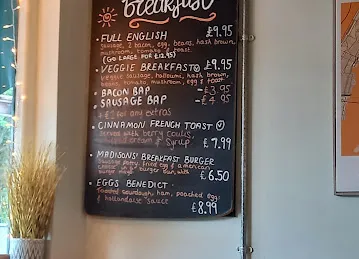 breakfast
• FULL ENGLISH £9.95
sausage, 2 bacon, egg, beans, hash brown,
mushroom, tomato & toast
(GO LARGE FOR £12.95)
• VEGGIE BREAKFAST £9.95
veggie sausage, halloumi, hash brown,
beans, tomato, mushroom, egg & toast
• BACON BAP -£3.95
• SAUSAGE BAP -£4.95
any extras
• CINNAMON FRENCH TOAST
served with berry coulis,
& syrup £7.99
• MADISONS' BREAKFAST BURGER
sausage patty, fried egg & american
cheese in a burger bun, with
£6.50
• EGGS BENEDICT
toasted sourdough, ham, poached eggs
& hollandaise sauce £8.99